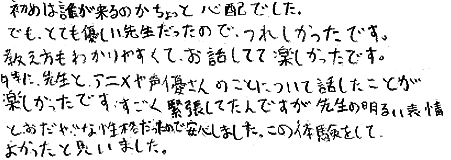 初めは誰が来るのかちょっと心配でした。
でも、とても優しい先生だったので、うれしかったです。
教え方もわかりやすくて、お話してて楽しかったです。
特に、先生と、アニメや声優さんのことについて話したことが
楽しかったです。すごく緊張してたんですが先生の明るい表情
とおだやかな性格だったので安心しました。この体験をして
よかったと思いました。